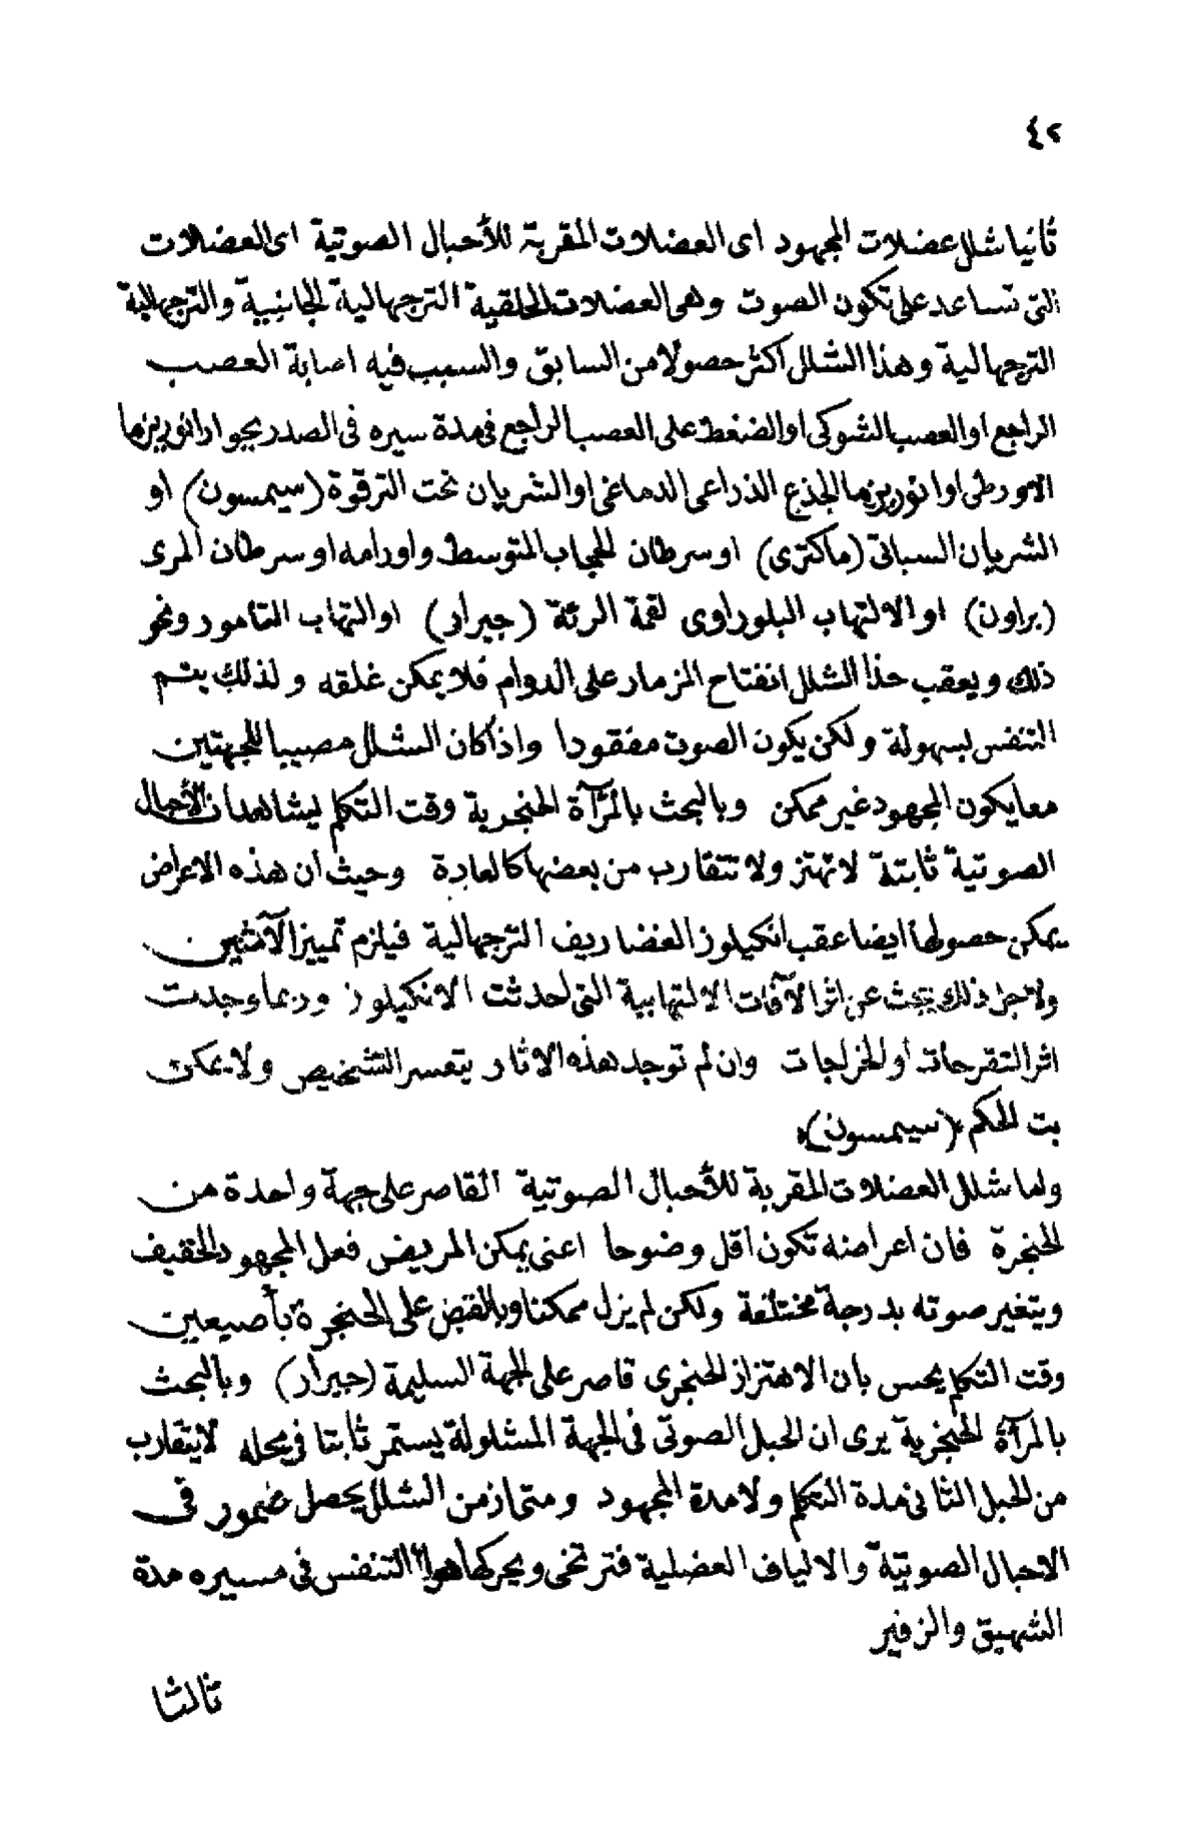 ٤٢
ثانيا شلل عضلات المجهود اى العضلات المقربة للأحبال الصوتية اى العضلات
التى تساعد على تكون الصوت وهى العضلات الحلقية الترجهالية الجانبية والترجهالية
الترجهالية وهذا الشلل اكثر حصولا من السابق والسبب فيه اصابة العصب
الراجع او العصب الشوكى او الضغط على العصب الراجع فى مدة سيره فى الصدر بجوار انوريزما
الاورطى او انوريزما الجذع الذراعى الدماغى او الشريان تحت الترقوة (سيمسون) او
الشريان السباتى (ماكنزى) او سرطان الحجاب المتوسط واورامه او سرطان المرى
(براون) او الالتهاب البلوراوى لقمة الرئة (جيرار) او التهاب التامور ونحو
ذلك ويعقب هذا الشلل انفتاح المزمار على الدوام فلا يمكن غلقه ولذلك يتم
التنفس بسهولة ولكن يكون الصوت مفقودا واذا كان الشلل مصيبا للجهتين
معا يكون المجهود غير ممكن وبالبحث بالمرآة الحنجرية وقت التكلم يشاهد أن الأحبال
الصوتية ثابتة لا تهتز ولا تتقارب من بعضها كالعادة وحيث أن هذه الاعراض
يمكن حصولها ايضا عقب انكيلوز الغضاريف الترجهالية فيلزم تمييز الآفتين
ولاجل ذلك يبحث عن اثر الآفات الالتهابية التى احدثت الانكيلوز وربما وجدت
اثر التقرحات أو الخراجات وان لم توجد هذه الاثار يتعسر التشخيص ولا يمكن
بت الحكم (سيمسون)
واما شلل العضلات المقربة للأحبال الصوتية القاصر على جهة واحدة من
الحنجرة فان اعراضه تكون أقل وضوحا اعنى يمكن المريض فعل المجهود الخفيف
ويتغير صوته بدرجة مختلفة ولكن لم يزل ممكنا وبالقبض على الحنجرة بأصبعين
وقت التكلم يحس بان الاهتزاز الحنجرى قاصر على الجهة السليمة (جيرار) وبالبحث
بالمرآة الحنجرية يرى ان الحبل الصوتى فى الجهة المشلولة يستمر ثابتا فى محله لا يتقارب
من الحبل الثانى مدة التكلم ولا مدة المجهود ومتى ازمن الشلل يحصل ضمور فى
الاحبال الصوتية والالياف العضلية فترتخى ويحركها هواء التنفس فى مسيره مدة
الشهيق والزفير
ثالثا